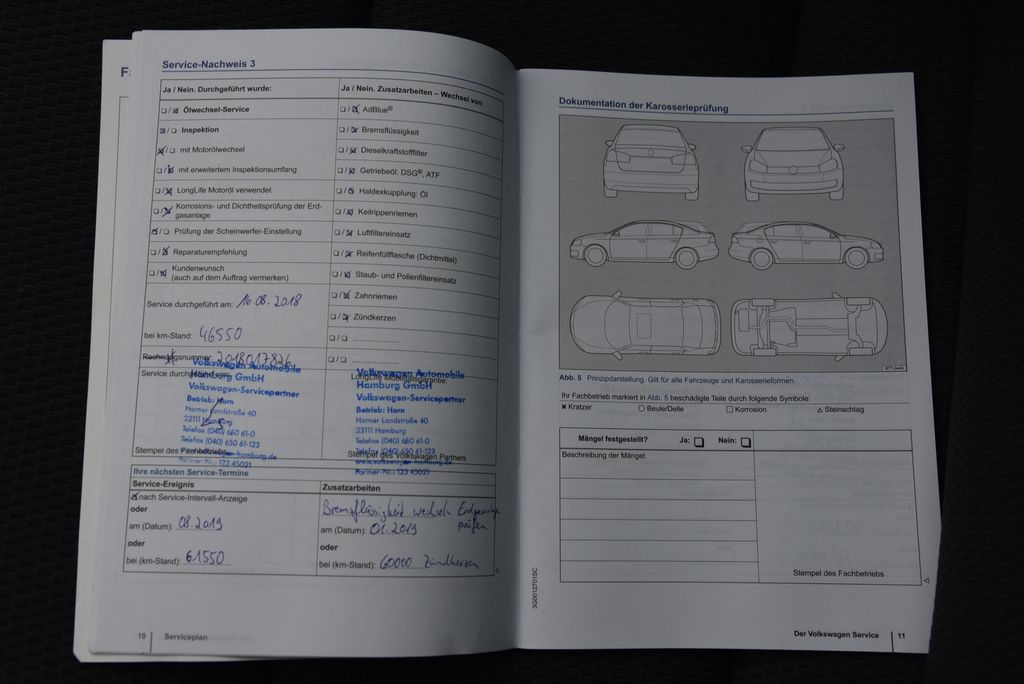 Service-Nachweis 3
Ja / Nein. Durchgeführt wurde:
Ja / Nein. Zusatzarbeiten – Wechsel von:
Ölwechsel-Service
AdBlue®
Inspektion
Bremsflüssigkeit
mit Motorölwechsel
Dieselkraftstofffilter
mit erweitertem Inspektionsumfang
Getriebeöl: DSG®, ATF
LongLife Motoröl verwendet
Haldexkupplung: Öl
Korrosions- und Dichtheitsprüfung der Erd-
gasanlage
Keilrippenriemen
Prüfung der Scheinwerfer-Einstellung
Luftfiltereinsatz
Reparaturempfehlung
Reifenfüllflasche (Dichtmittel)
Kundenwunsch
(auch auf dem Auftrag vermerken)
Staub- und Pollenfiltereinsatz
Zahnriemen
Service durchgeführt am: 16.08.2018
Zündkerzen
bei km-Stand: 46550
Rechnungsnummer: 2018017826
Service durchgeführt von:
LongLife Mobilitätsgarantie:
Volkswagen Automobile
Hamburg GmbH
Volkswagen-Servicepartner
Betrieb: Horn
Horner Landstraße 40
22111 Hamburg
Telefon (040) 650 61-0
Telefax (040) 650 61-123
Partner-Nr.: 123 45021
Volkswagen Automobile
Hamburg GmbH
Volkswagen-Servicepartner
Betrieb: Horn
Horner Landstraße 40
22111 Hamburg
Telefon (040) 650 61-0
Telefax (040) 650 61-123
www.volkswagen-hamburg.de
Partner-Nr.: 123 45021
Stempel des Fachbetriebs
Stempel des Volkswagen Partners
Ihre nächsten Service-Termine
Service-Ereignis
Zusatzarbeiten
nach Service-Intervall-Anzeige
Bremsflüssigkeit wechseln Erdgasanlage
prüfen
oder
am (Datum): 08.2019
am (Datum): 01.2019
oder
oder
bei (km-Stand): 61550
bei (km-Stand): 60000 Zündkerzen
10 Serviceplan
Dokumentation der Karosserieprüfung
Abb. 5 Prinzipdarstellung. Gilt für alle Fahrzeuge und Karosserieformen.
Ihr Fachbetrieb markiert in Abb. 5 beschädigte Teile durch folgende Symbole:
× Kratzer
○ Beule/Delle
□ Korrosion
△ Steinschlag
Mängel festgestellt? Ja: Nein:
Beschreibung der Mängel:
Stempel des Fachbetriebs
3G0012701SC
Der Volkswagen Service 11